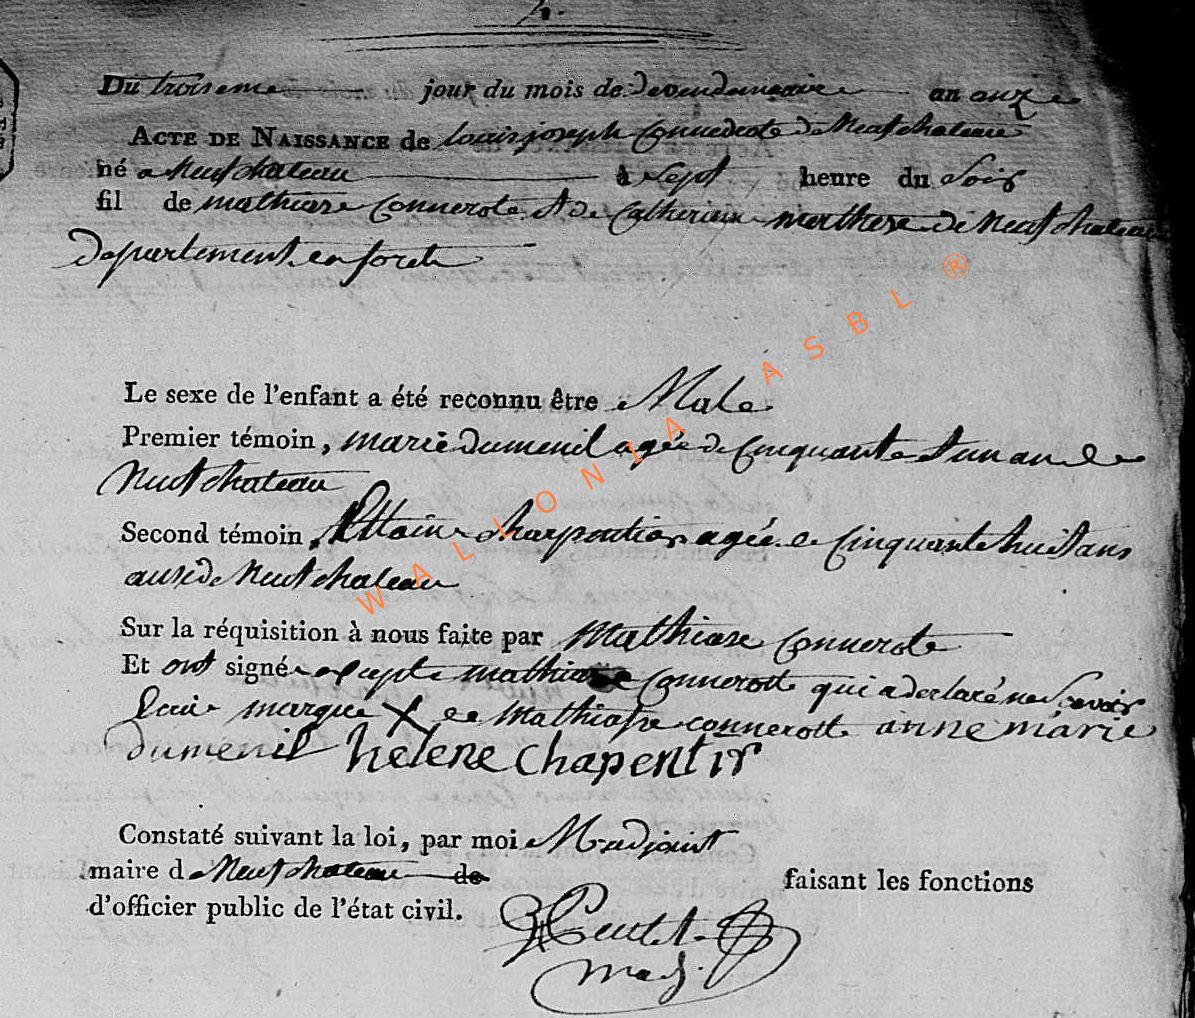 2.
Du troiseme jour du mois de devendemiaire an onze
ACTE DE NAISSANCE de Louis joseph Connerote de Neufchateau
né a Neufchateau à Sept heure du Soir
fil de mathiase Connerote et de Catherinne de Neufchateau
departement en foret
Le sexe de l'enfant a été reconnu être Male
Premier témoin, marie dumenil agée de Cinquante et un an de
Neufchateau
Second témoin, charpentier agée de Cinquante huit ans
ausi de Neufchateau
Sur la réquisition à nous faite par Mathiase Connerote
Et ont signé exepte mathiase Connerotte qui a declaré ne Savoir
marque X de Mathiase connerotte anne marie
dumenil helene Chapentir
Constaté suivant la loi, par moi M. adjoint
maire d Neufchateau de faisant les fonctions
d'officier public de l'état civil.
WALLONIA ASBL ®